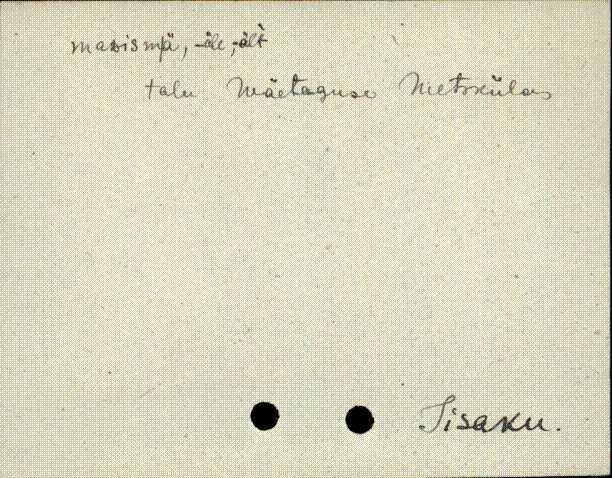 masismä, -äle, -ält
talu Mäetaguse Metskülas
Iisaku.